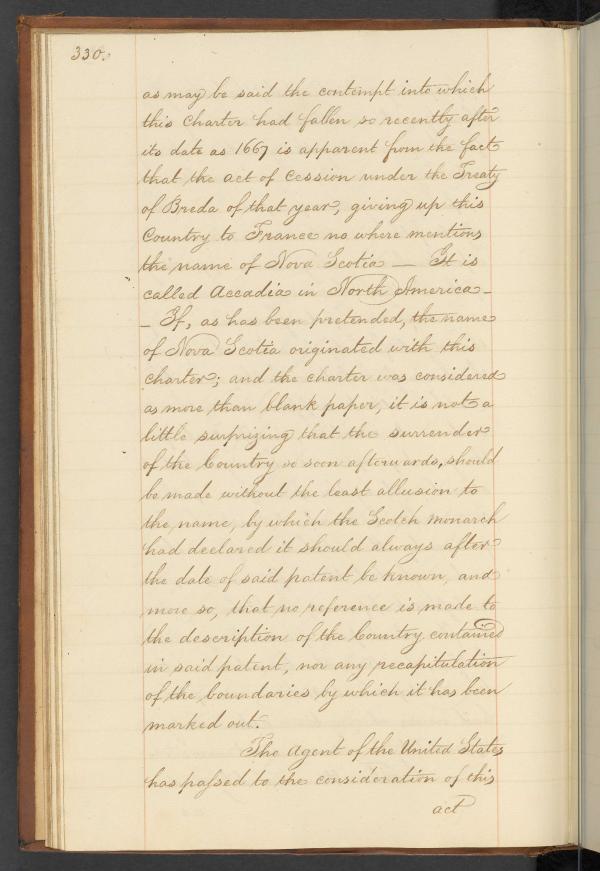 330.
as may be said the contempt into which
this Charter had fallen so recently after
its date as 1667 is apparent from the fact
that the act of Cession under the Treaty
of Breda of that year, giving up this
Country to France no where mentions
the name of Nova Scotia — It is
called Accadia in North America —
— If, as has been pretended, the name
of Nova Scotia originated with this
charter; and the charter was considered
as more than blank paper, it is not a
little surprizing that the surrender
of the Country so soon afterwards, should
be made without the least allusion to
the name, by which the Scotch monarch
had declared it should always after
the date of said patent be known, and
more so, that no reference is made to
the description of the Country contained
in said patent, nor any recapitulation
of the boundaries by which it has been
marked out.
The Agent of the United States
has passed to the consideration of this
act